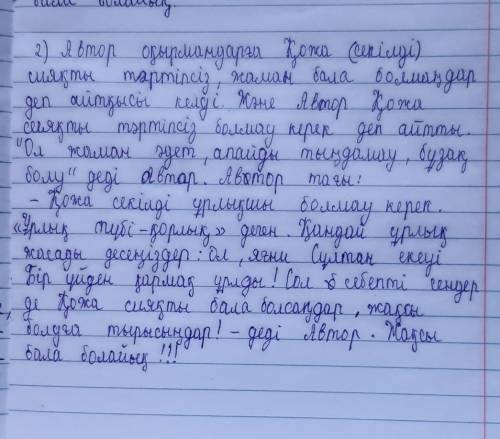 бала болайық.
2) Автор оқырмандарға Қожа (секілді)
сияқты тәртіпсіз, жаман бала болмаңдар
деп айтқысы келді. Және Автор Қожа
сияқты тәртіпсіз болмау керек деп айтты.
"Ол жаман әдет, апайды тыңдамау, бұзақ
болу" деді Автар. Автор тағы:
- Қожа секілді ұрлықшы болмау керек.
«Ұрлық түбі - қорлық» деген. Қандай ұрлық
жасады десеңіздер: Ол, яғни Сұлтан екеуі
Бір үйден қармақ ұрлды! Сол себепті сендер
де Қожа сияқты бала болсаңдар, жақсы
болуға тырысыңдар! - деді Автор. Жақсы
бала болайық!!!